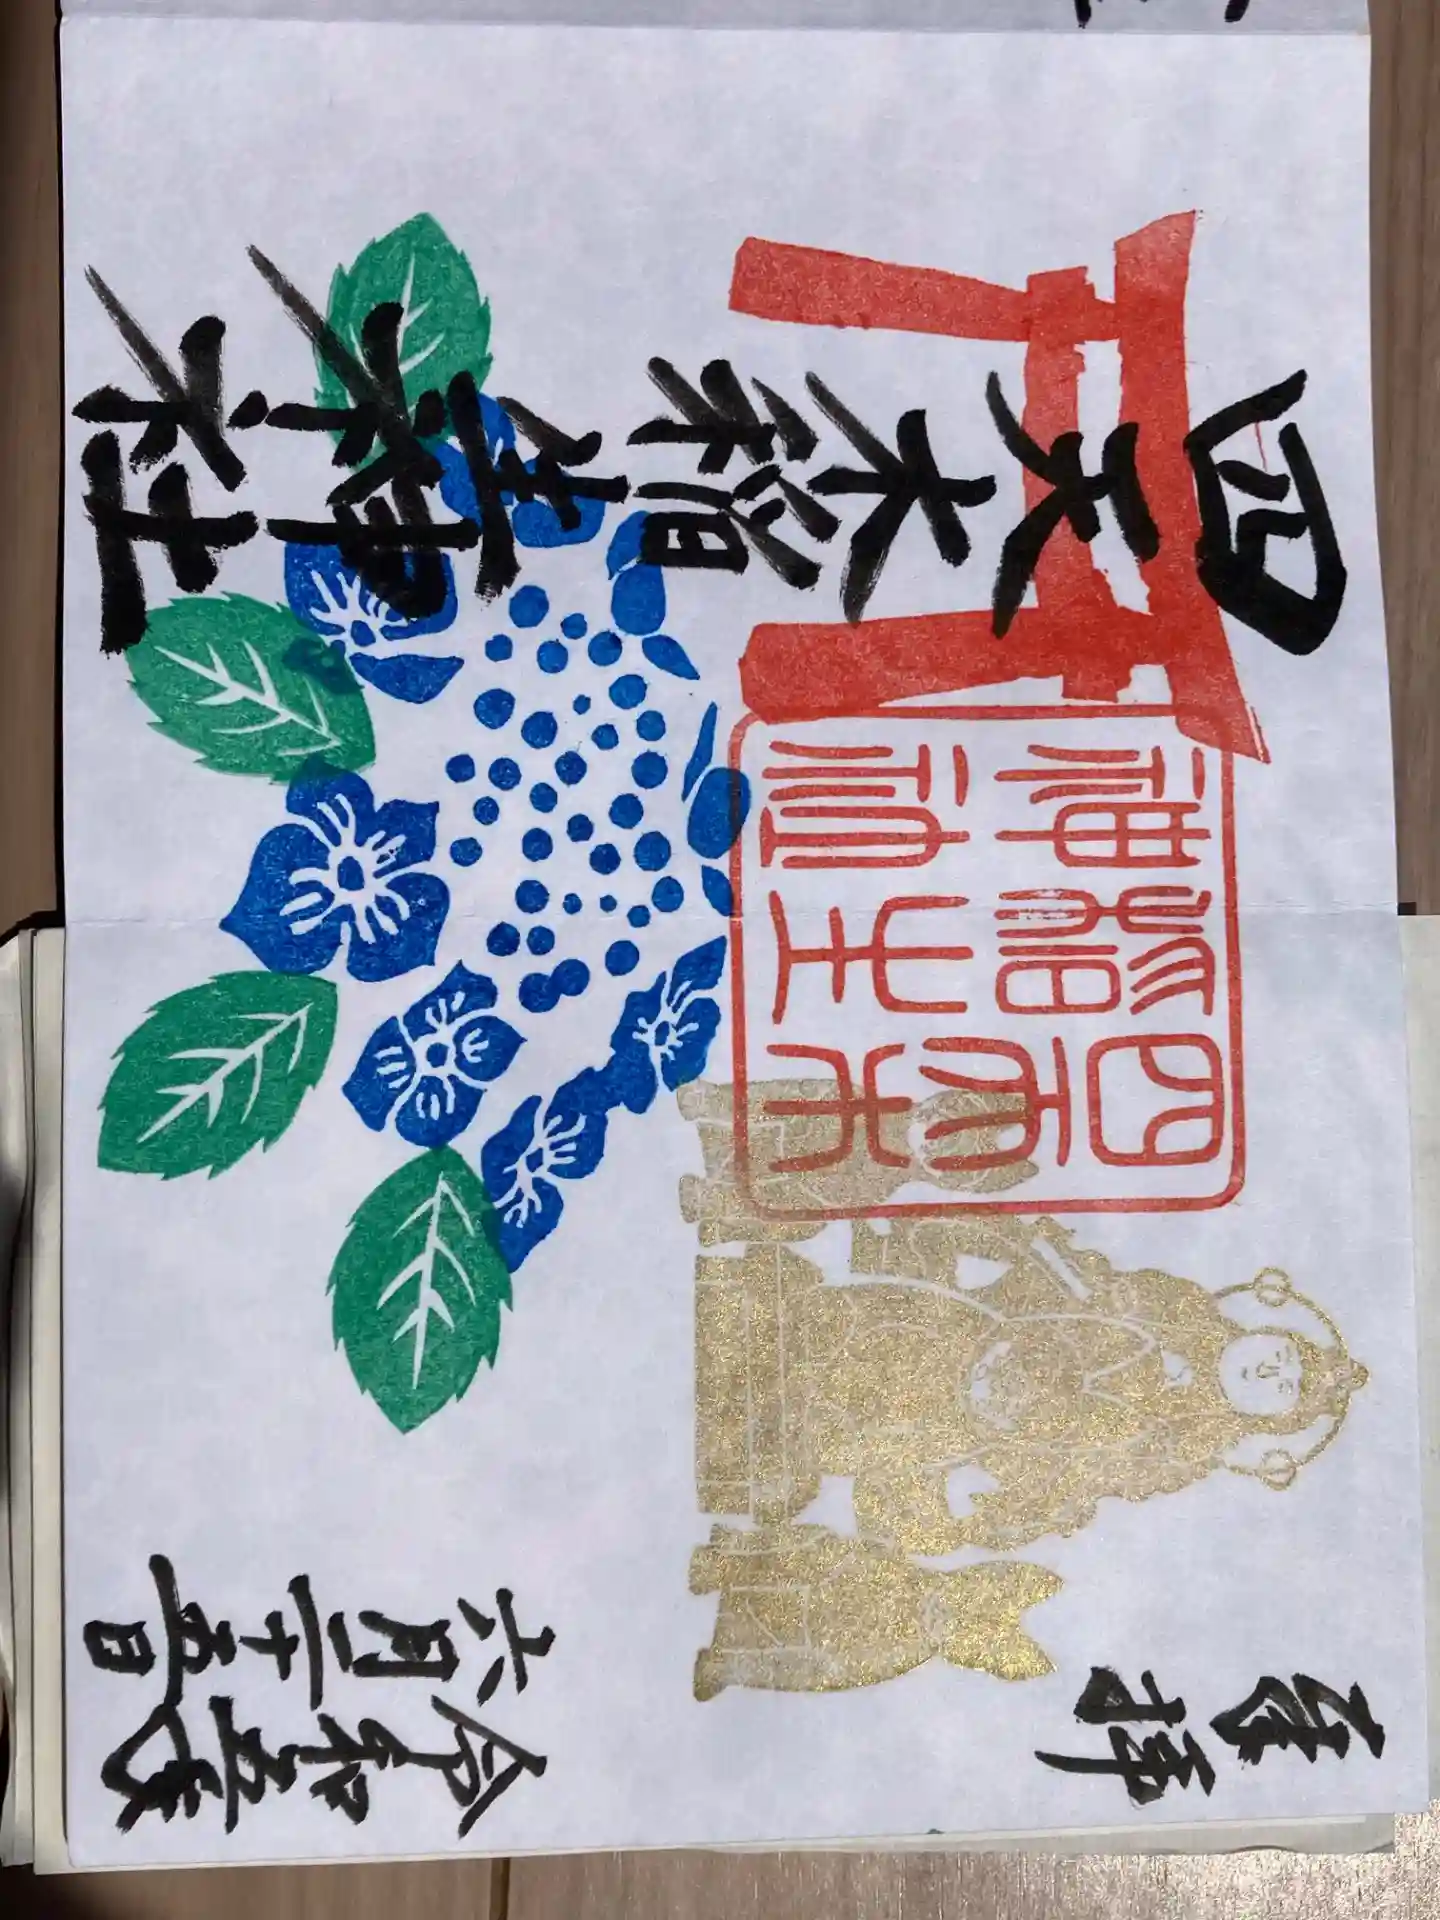 奉拝
四天木稲生神社
四天木
稲生
神社
令和五歳
六月二十五日